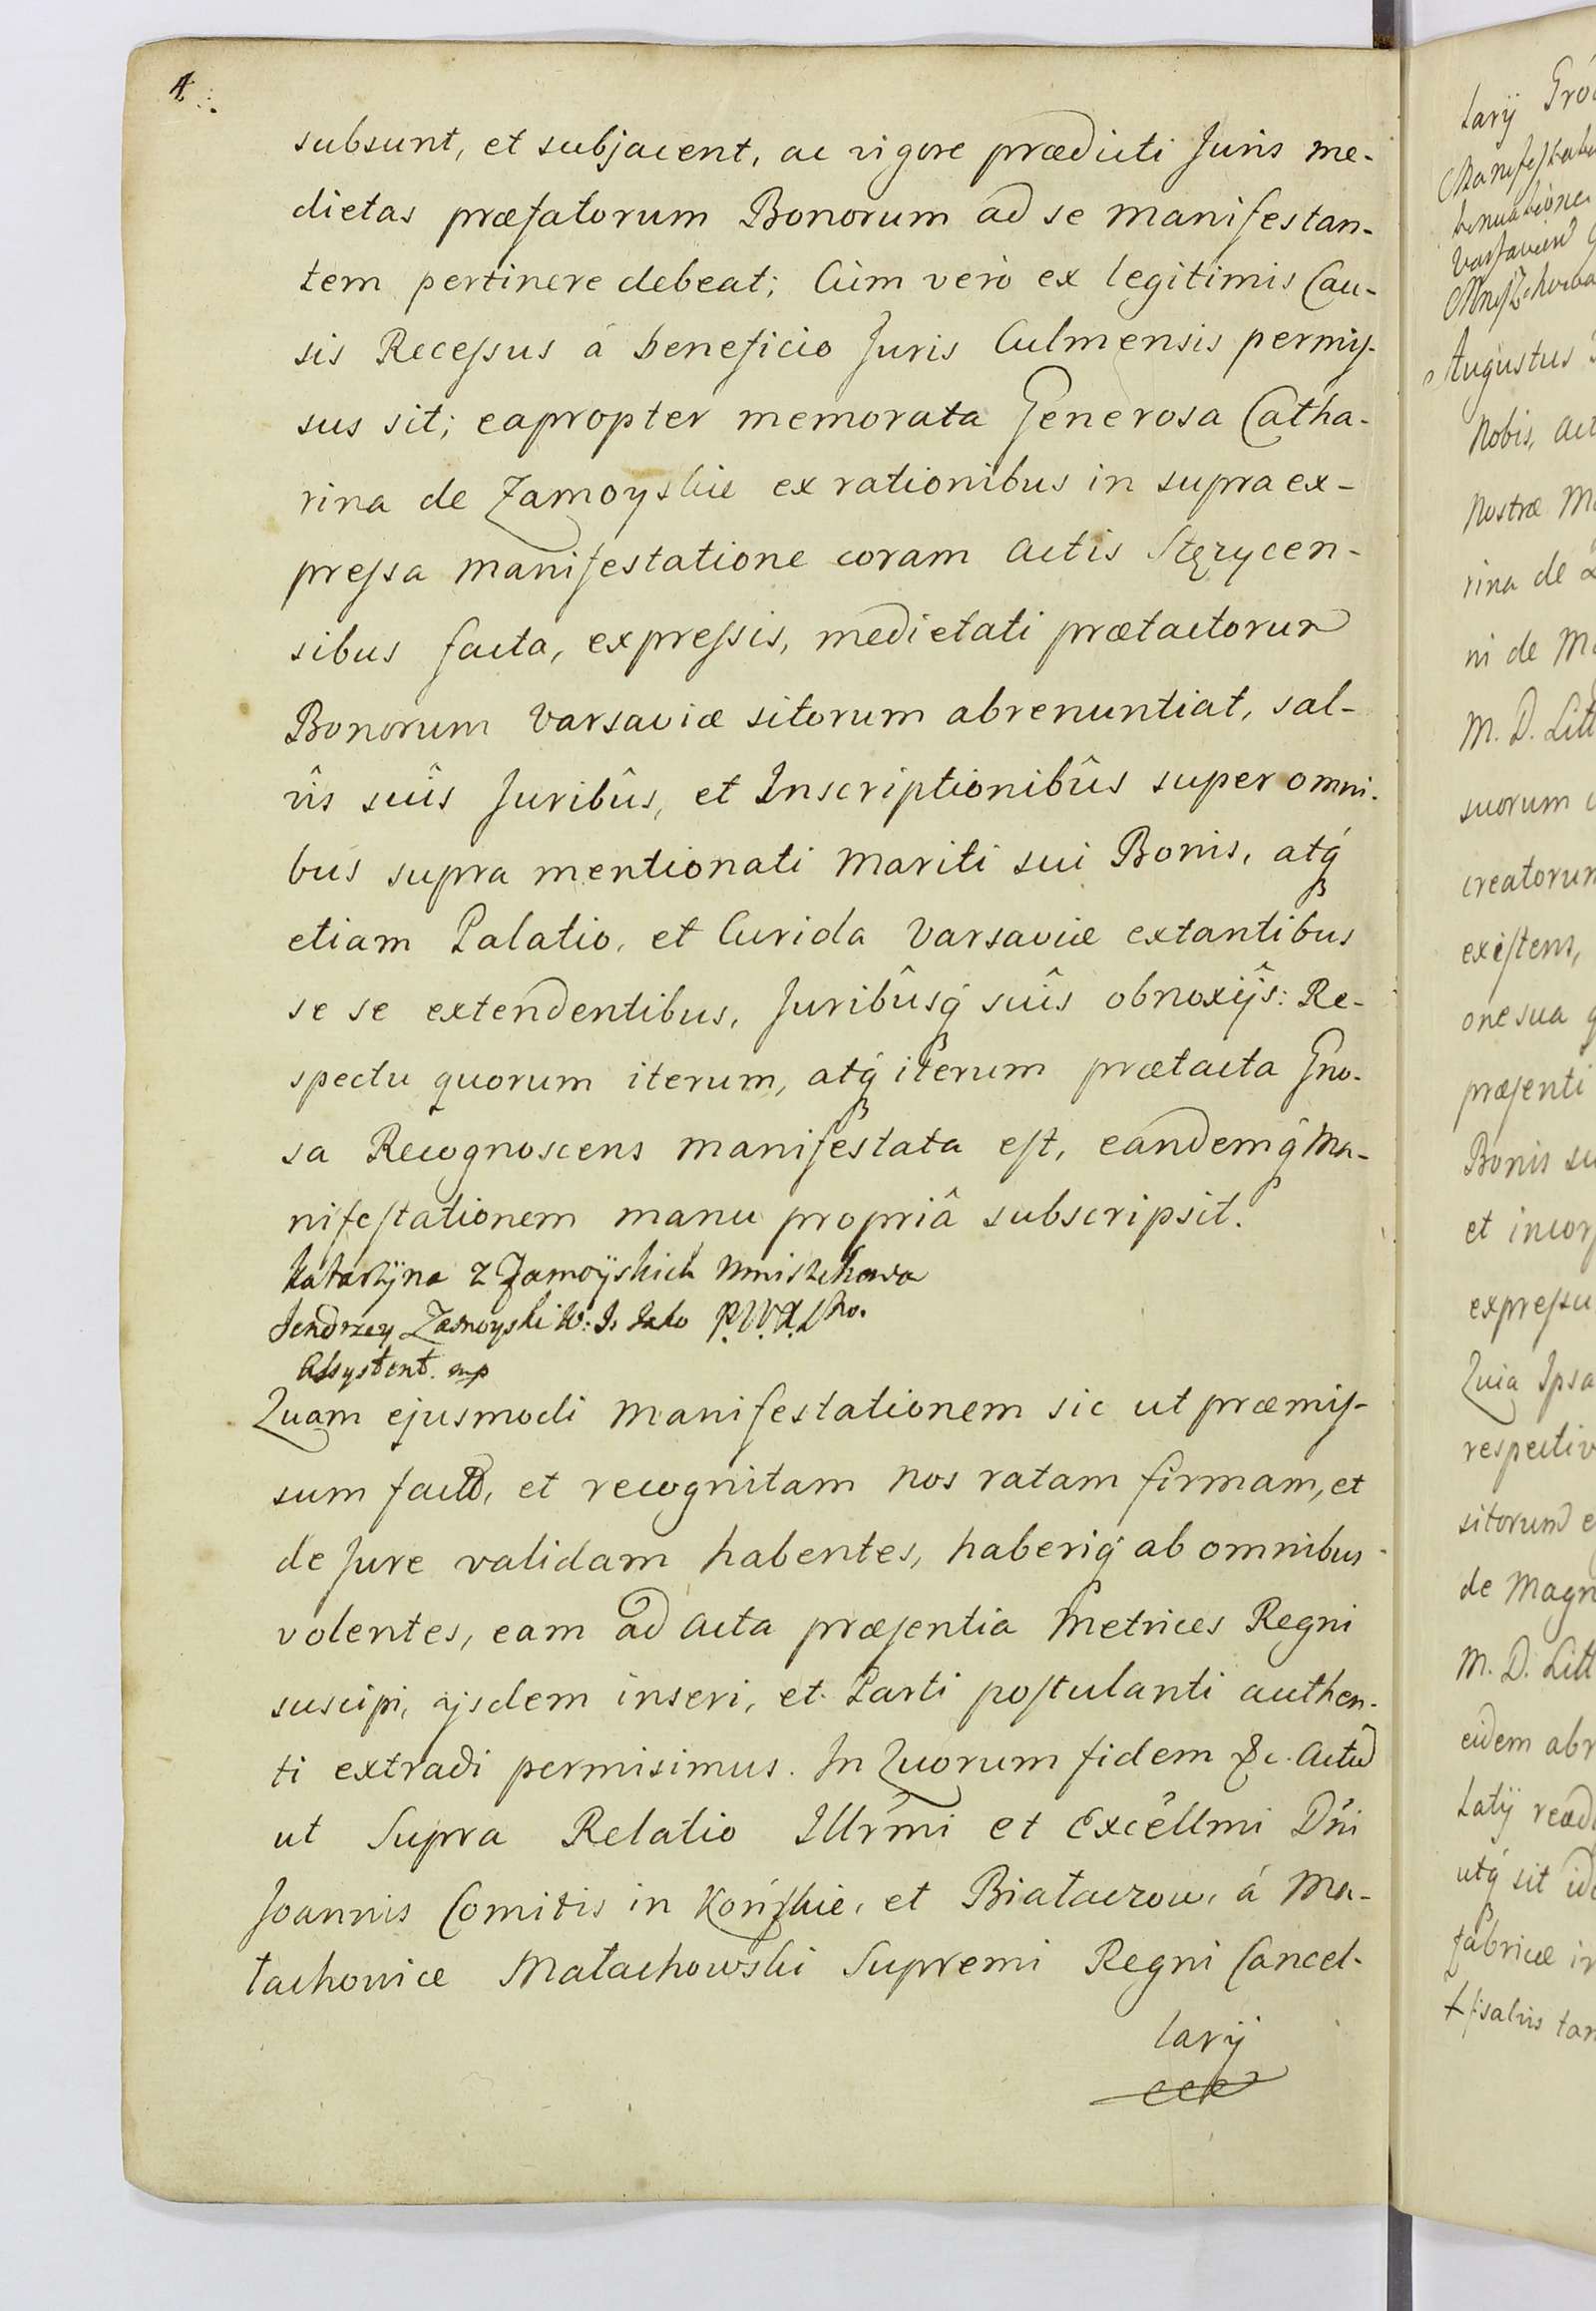 4
subsunt, et subjacent, ac vigore prædicti Juris me-
dietas præfatorum Bonorum ad se manifestan-
tem pertinere debeat; Cùm verò ex legitimis Cau-
sis Recessus á beneficio Juris Culmensis permis-
sus sit; eapropter memorata Generosa Catha-
rina de Zamoyskie ex rationibus in supra ex-
pressa manifestatione coram Actis Stęzycen-
sibus facta, expressis, medietati prætactorum
Bonorum Varsaviæ sitorum abrenuntiat, sal-
vîs suîs Juribûs, et Inscriptionibûs super omni-
bus supra mentionati Mariti sui Bonis, atq́
etiam Palatio, et Curiola Varsaviæ extantibus
se se extendentibus, Juribûsq́ suîs obnoxijs: Re-
spectu quorum iterum, atq́ iterum prætacta Gno-
sa Recognoscens manifestata est, eandemq́ Ma-
nifestationem manu propriâ subscripsit.
Katarzÿna z Zamoÿskich Mniszchowa
Jendrzey Zamoyski W: I. Jako P.W.X.L
Assystent. mp
Quam ejusmodi Manifestationem sic ut præmis-
sum fact, et recognitam Nos ratam firmam, et
de Jure validam habentes, haberiq́ ab omnibus
volentes, eam ad Acta præsentia Metrices Regni
suscipi, ijsdem inseri, et Parti postulanti authen-
ti extradi permisimus. In Quorum fidem &c. Actu
ut Supra Relatio Illr̃mi et Excẽllmi Dñi
Joannis Comitis in Końskie, et Białaczow, á Ma-
łachowice Małachowski Supremi Regni Cancel-
larij
tarij
nobis,
nostræ
rina de
ni de
M. D. Litt
suorum
creatorum
existens,
one sua
præsenti
Bonis
et
Quia Ipsa
de
M. D. Litt
eidem
utq́ sit
fabricæ
salvis